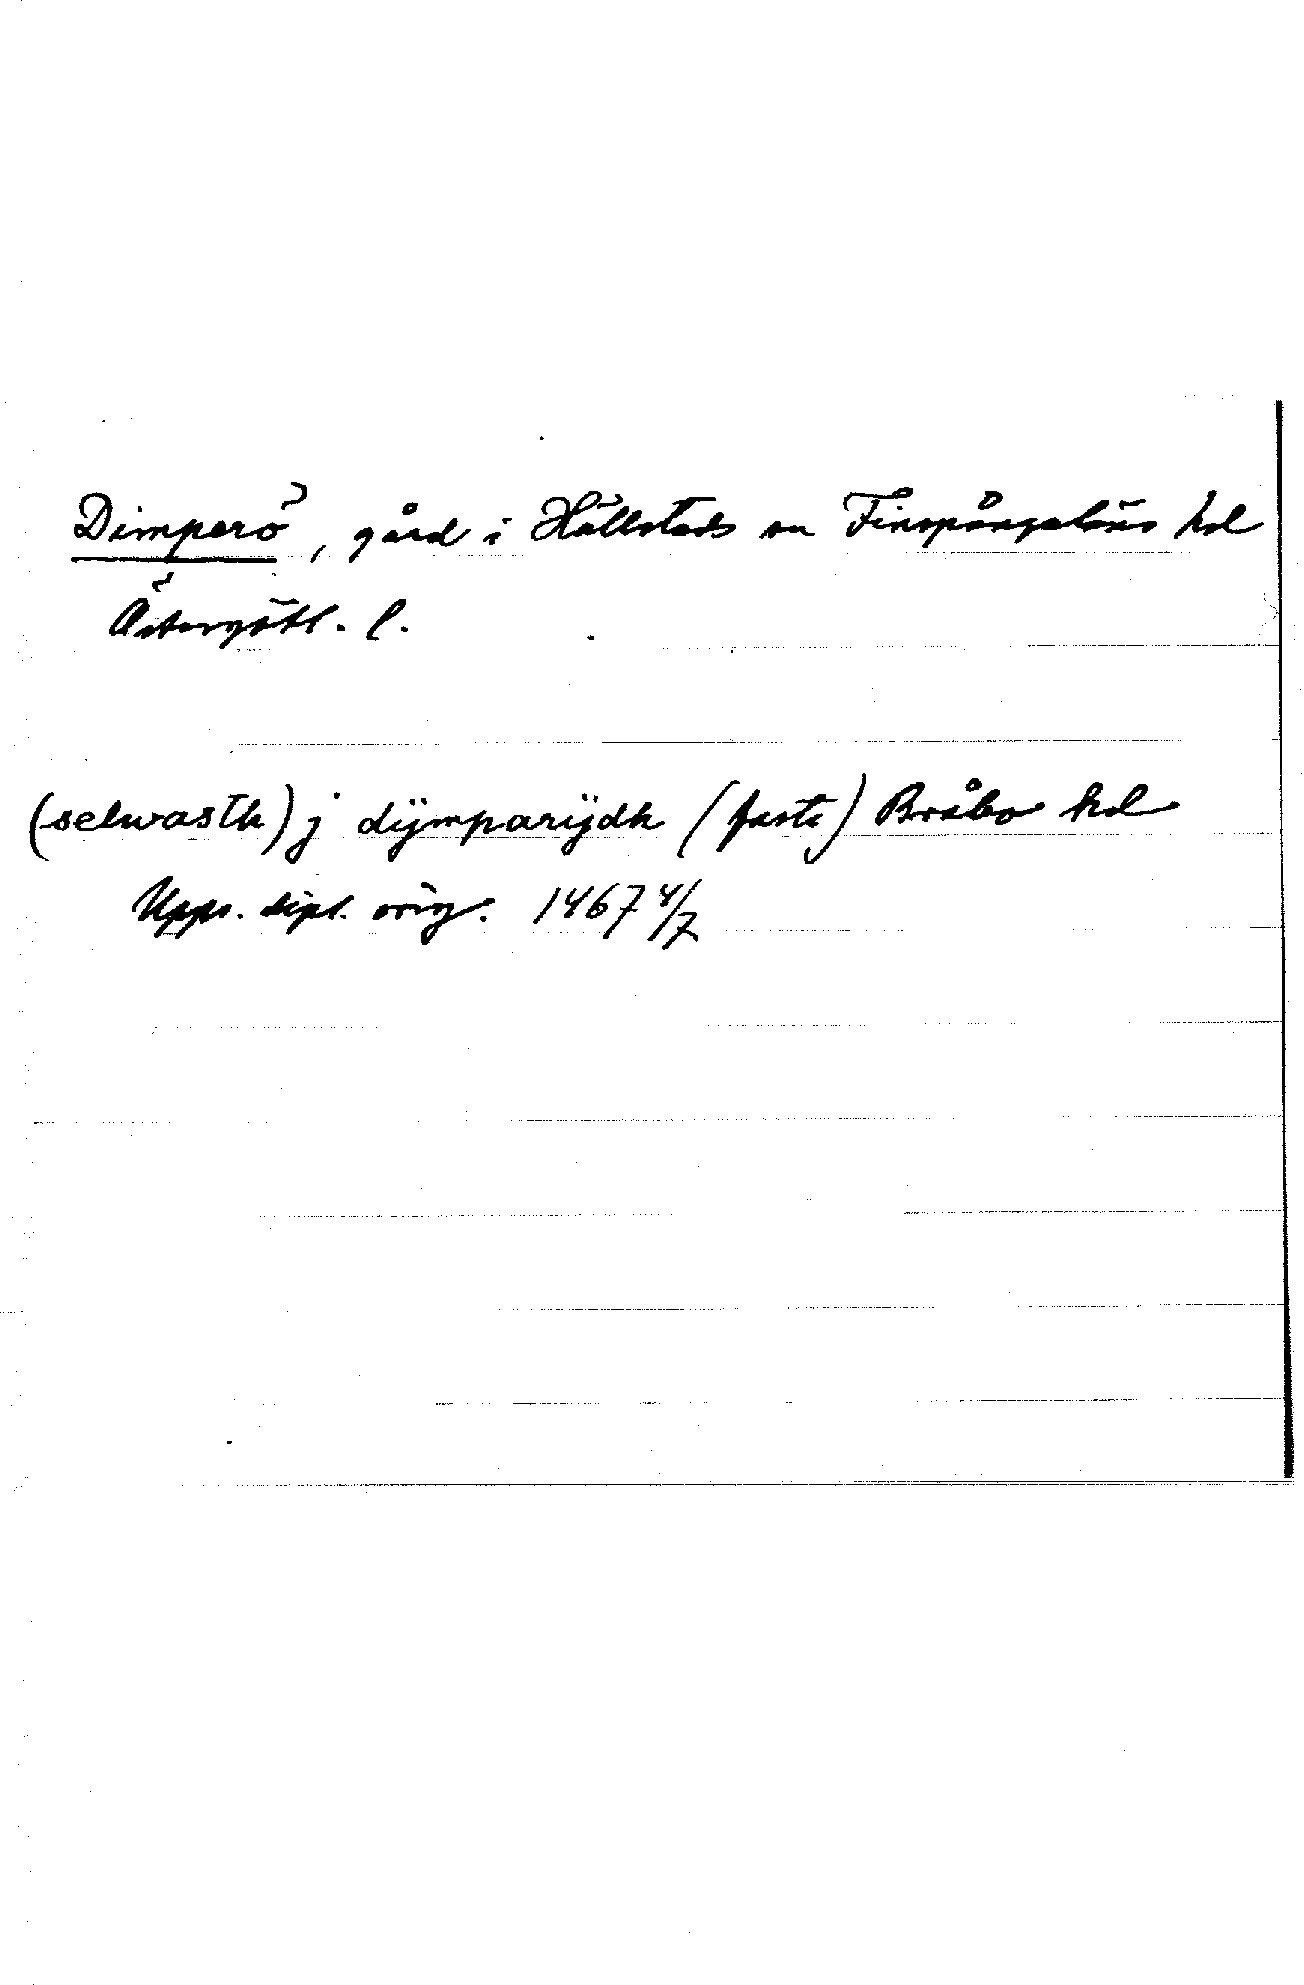 Dimperö, gård i Hällestads sn Finspångaläns hd
Östergötl. l.
(selwasth) j dÿmparÿdh (faste) Bråbo hd
Upps. dipl. orig. 1467 4/7